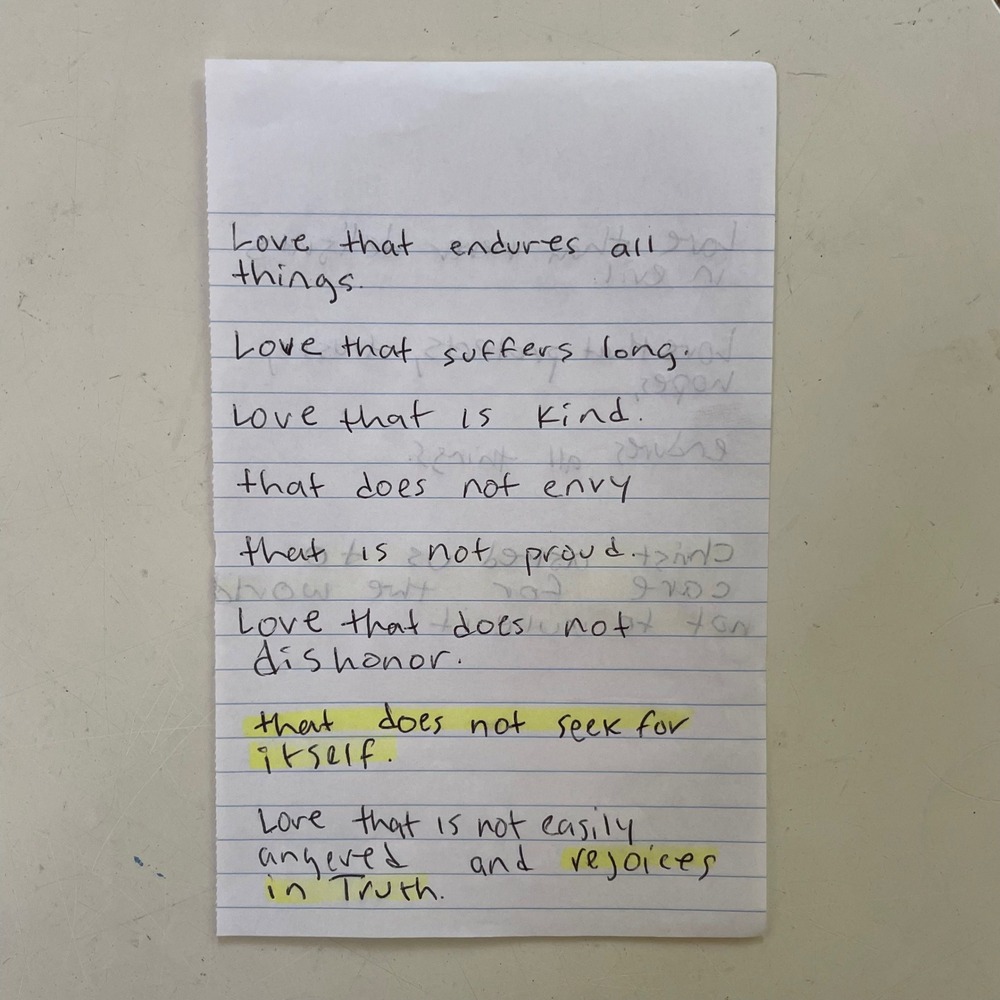 Love that endures all
things.
Love that suffers long.
Love that is kind.
that does not envy
that is not proud.
Love that does not
dishonor.
that does not seek for
itself.
Love that is not easily
angered and rejoices
in Truth.